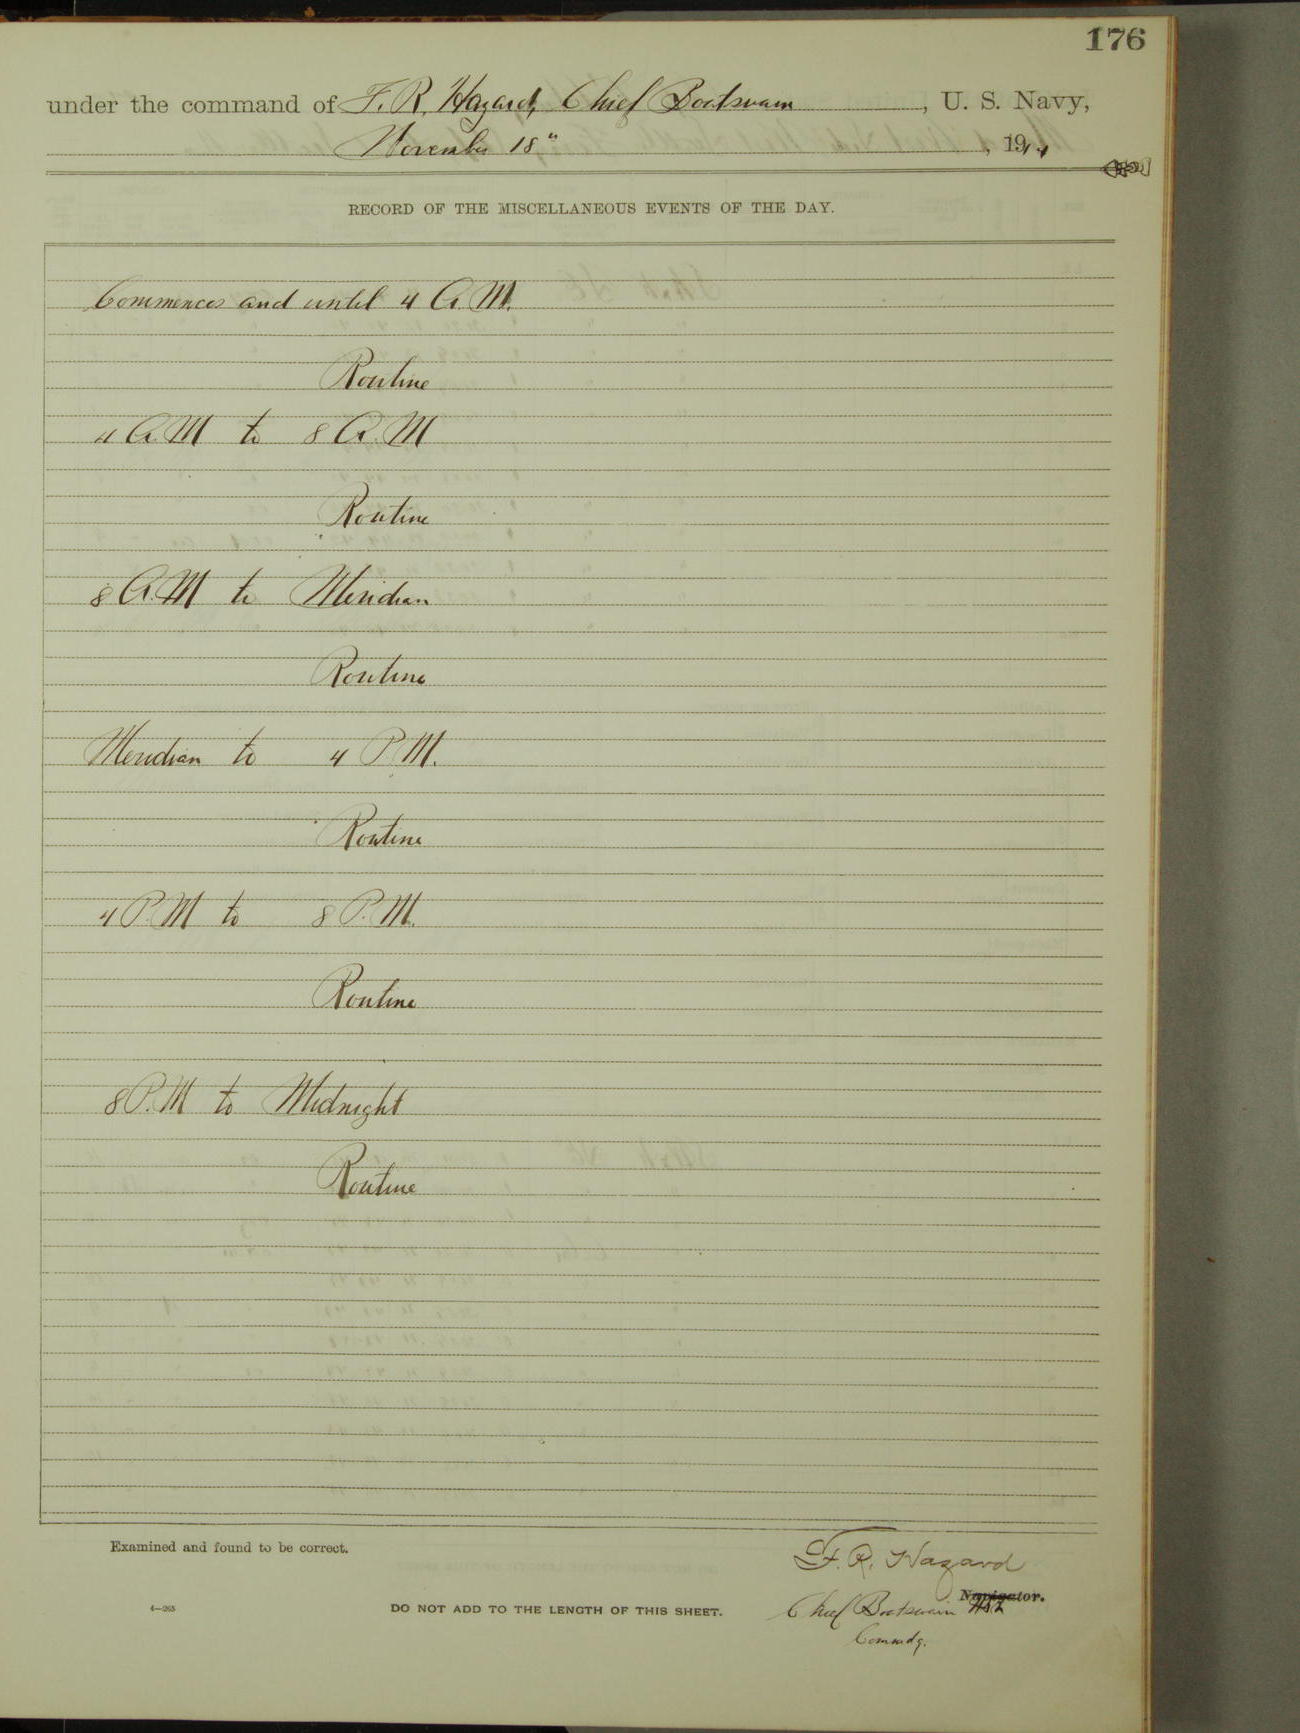 176
under the command of F. R. Hazard, Chief Boatswain, U. S. Navy,
November 18", 1914
RECORD OF THE MISCELLANEOUS EVENTS OF THE DAY.
Commences and until 4 A.M.
Routine
4 A.M to 8 A.M
Routine
8 A.M to Meridian
Routine
Meridian to 4 P.M.
Routine
4 P.M to 8 P.M.
Routine
8 P.M to Midnight
Routine
Examined and found to be correct.
F. R. Hazard
Navigator.
4—265
DO NOT ADD TO THE LENGTH OF THIS SHEET.
Chief Boatswain
Commdg.